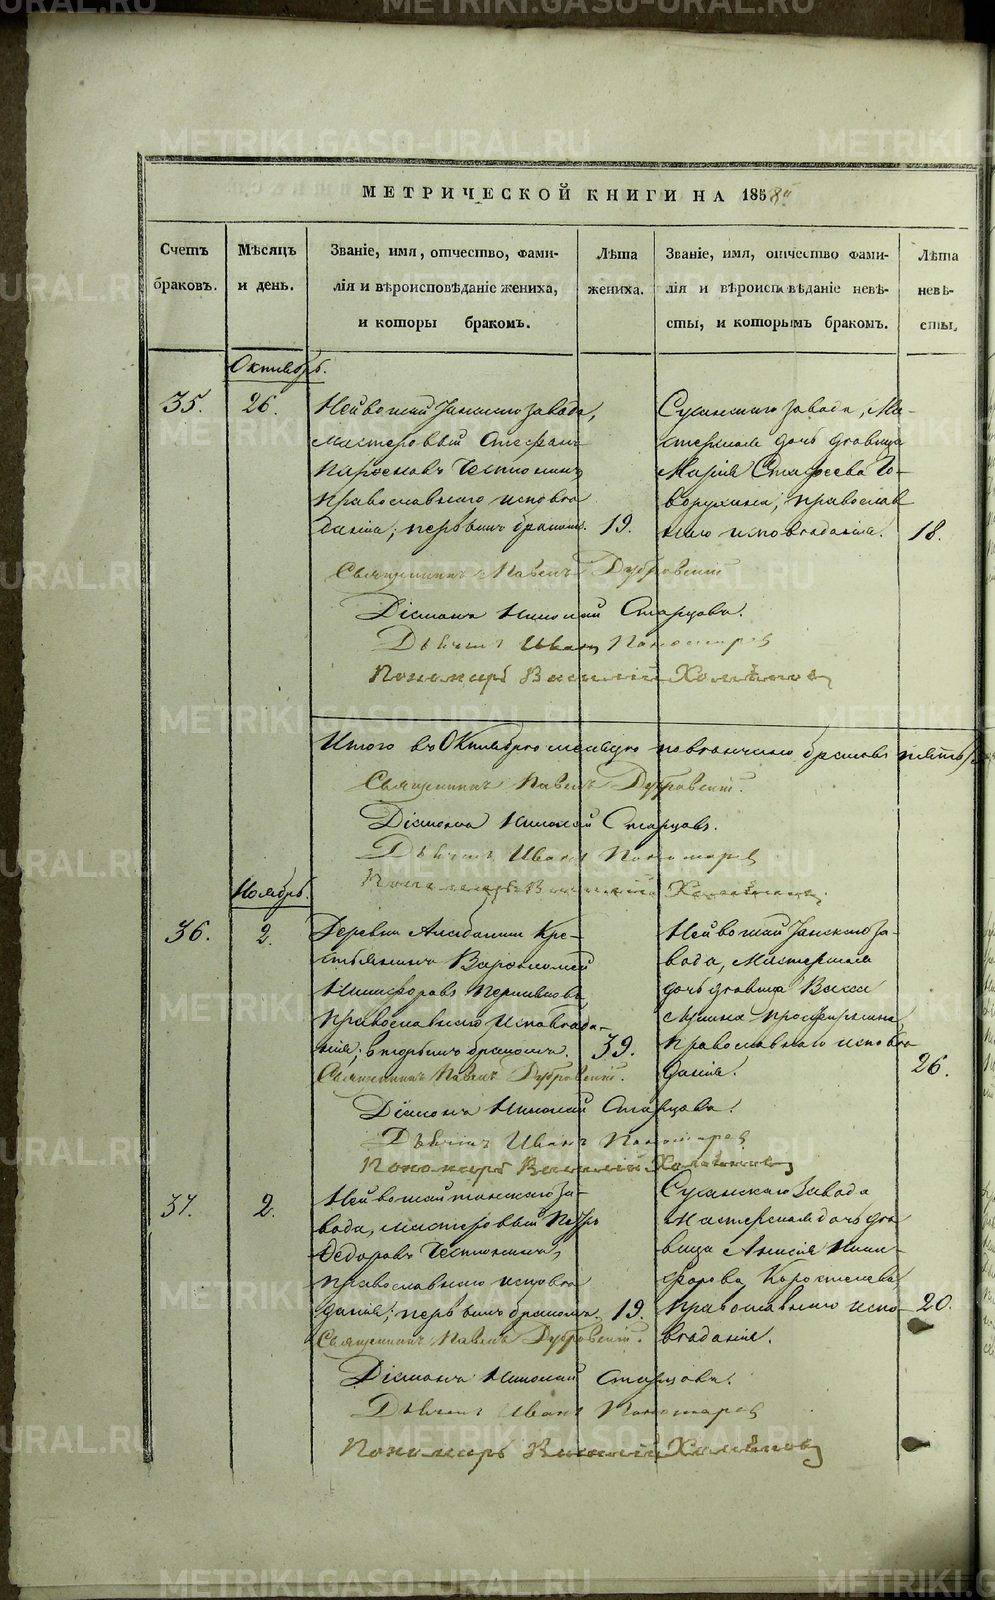 METRIKI.GASO-URAL.RU
МЕТРИЧЕСКОЙ КНИГИ НА 1858й
Счетъ браковъ.
Мѣсяцъ и день.
Званіе, имя, отчество, фами-
лія и вѣроисповѣданіе жениха,
и которы бракомъ.
Лѣта жениха.
Званіе, имя, отчество фами-
лія и вѣроисповѣданіе невѣ-
сты, и которымъ бракомъ.
Лѣта невѣ-
сты.
Октябрь.
35.
26.
завода,
мастеровый Стефанъ
православнаго исповѣ
данія; первымъ бракомъ.
19.
Сусанскаго завода, Ма-
стерская дочь девица
Марія Го-
ворухина, православ
наго исповѣданія.
18.
Священникъ Павелъ Дубровскій
Діаконъ Николай Старцовъ.
Дьячекъ Иванъ Пономарев
Пономарь Василій
Итого въ Октябрѣ месяцѣ повѣнчано браковъ пять
Священникъ Павелъ Дубровскій.
Діаконъ Николай Старцовъ.
Дьячекъ Иванъ Пономарев
Пономарь Василій
Ноябрь.
36.
2.
Деревни Кре-
стьянинъ Варѳоломей
Никифоровъ
православнаго исповѣда-
нія; вторымъ бракомъ.
39.
за-
вода, Мастерская
дочь девица Васса
православнаго исповѣ
данія.
26.
Священникъ Павелъ Дубровскій.
Діаконъ Николай Старцовъ.
Дьячекъ Иванъ Пономарев
Пономарь Василій
37.
2.
за-
вода, мастеровый Петръ
Ѳедоровъ
православнаго исповѣ
данія; первымъ бракомъ.
19.
Сусанскаго завода
Мастерская дочь де-
вица Анисія Ники-
форова
православнаго испо-
вѣданія.
20.
Священникъ Павелъ Дубровскій.
Діаконъ Николай Старцовъ.
Дьячекъ Иванъ Пономарев
Пономарь Василій